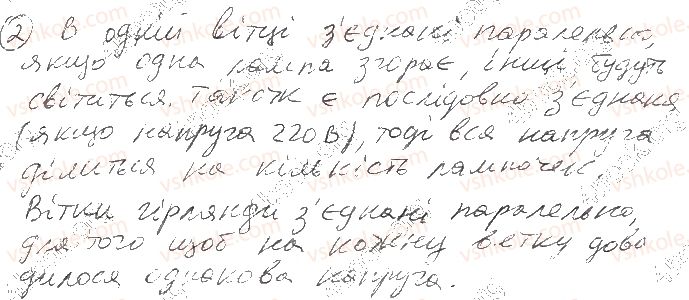 ② В одній вітці з'єднані паралельно,
якщо одна лампа згорає, інші будуть
світиться. Також є послідовно з'єднана
(якщо напруга 220 В), тоді вся напруга
ділиться на кількість лампочек.
Вітки гірлянди з'єднані паралельно,
для того щоб на кожну ветку дова
дилося однакова напруга.